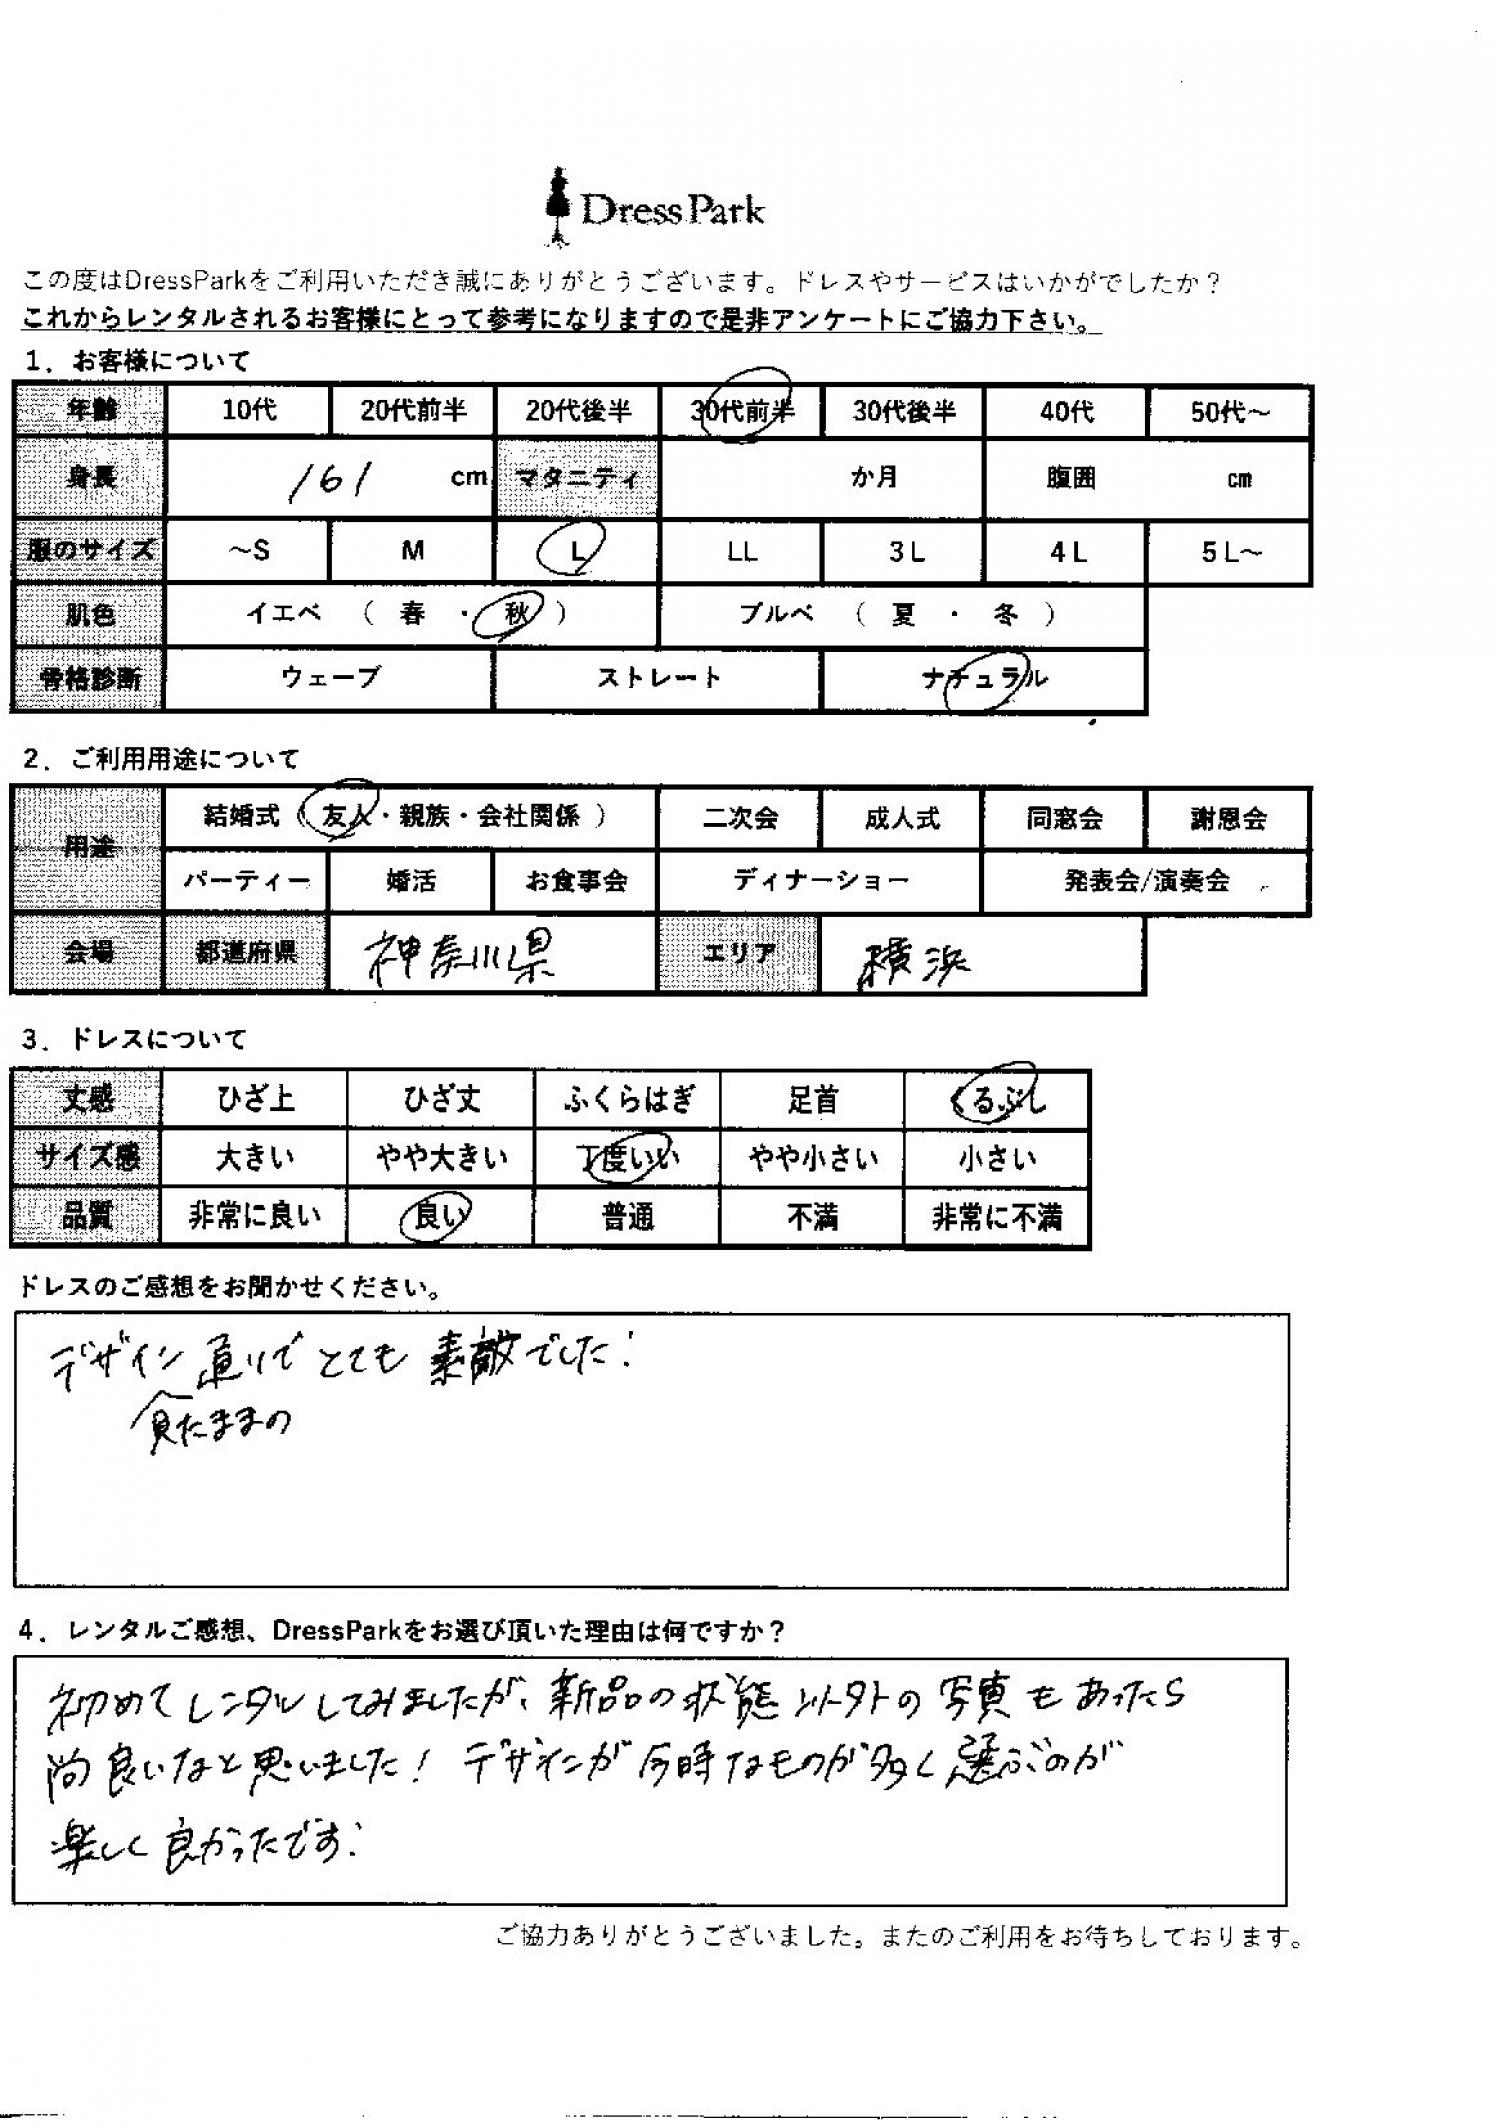 DressPark
この度はDressParkをご利用いただき誠にありがとうございます。ドレスやサービスはいかがでしたか？
これからレンタルされるお客様にとって参考になりますので是非アンケートにご協力下さい。
1．お客様について
年齢 10代 20代前半 20代後半 30代前半 30代後半 40代 50代～
身長 161 cm マタニティ か月 腹囲 cm
服のサイズ ～S M L LL 3L 4L 5L～
肌色 イエベ （ 春 ・ 秋 ） ブルベ （ 夏 ・ 冬 ）
骨格診断 ウェーブ ストレート ナチュラル
2．ご利用用途について
用途 結婚式（ 友人・親族・会社関係 ） 二次会 成人式 同窓会 謝恩会
パーティー 婚活 お食事会 ディナーショー 発表会/演奏会
会場 都道府県 神奈川県 エリア 横浜
3．ドレスについて
丈感 ひざ上 ひざ丈 ふくらはぎ 足首 くるぶし
サイズ感 大きい やや大きい 丁度いい やや小さい 小さい
品質 非常に良い 良い 普通 不満 非常に不満
ドレスのご感想をお聞かせください。
デザイン通りでとても素敵でした！
見たままの
4．レンタルご感想、DressParkをお選び頂いた理由は何ですか？
初めてレンタルしてみましたが、新品の状態以外の写真もあったら
尚良いなと思いました！デザインが今時なものが多く選ぶのが
楽しく良かったです！
ご協力ありがとうございました。またのご利用をお待ちしております。